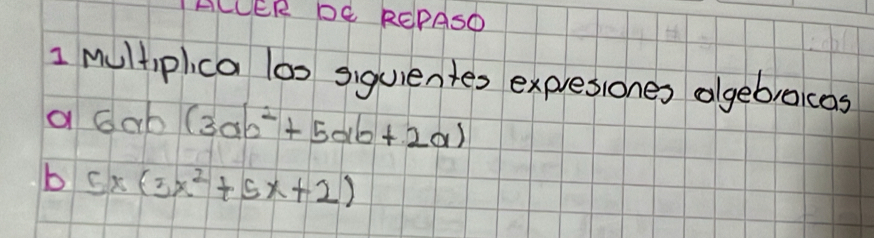 TALLER DE REPASO
1 Multiplica las siguientes expresiones algebraicas
a 6ab (3ab² + 5ab + 2a)
b 5x (3x² + 5x + 2)